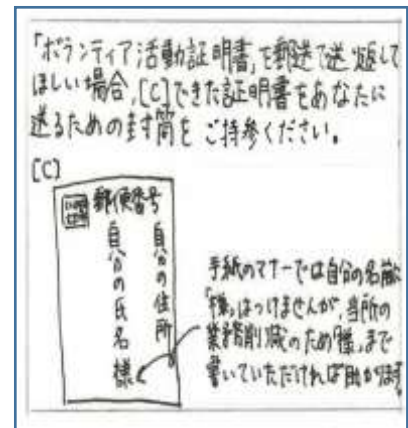 「ボランティア活動証明書」を郵送で送り返して
ほしい場合、[C]できた証明書をあなたに
送るための封筒をご持参ください。
[C]
郵便番号
自分の住所
自分の氏名 様
手紙のマナーでは自分の名前に
「様」はつけませんが、当所の
業務削減のため「様」まで
書いていただければ助かります。